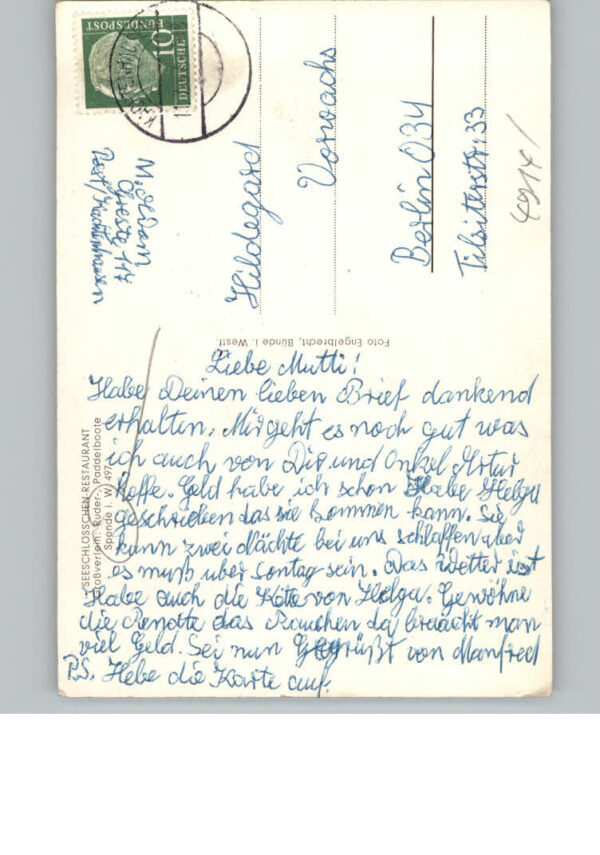 DEUTSCHE
BUNDESPOST
10
M. Adom
Hildegard
Vorwachs
Berlin O34
Tilsiterstr. 33
4914/
Foto Engelbrecht, Bünde i. Westf.
SEESCHLÖSSCHEN-RESTAURANT
Ruder-, Paddelboote
Spenge i. W. 497
Liebe Mutti!
Habe Deinen lieben Brief dankend
erhalten. Mir geht es noch gut was
ich auch von Dir und Onkel Artur
hoffe. Geld habe ich schon Habe Helga
geschrieben das sie kommen kann. Sie
kann zwei Nächte bei uns schlaffen aber
es muß über Sontag sein. Das Wetter ist
Habe auch die von Helga. Gewöhne
die Renate das Rauchen da braucht man
viel Geld. Sei nun Gegrüßt von Manfred
P.S. Hebe die Karte auf.